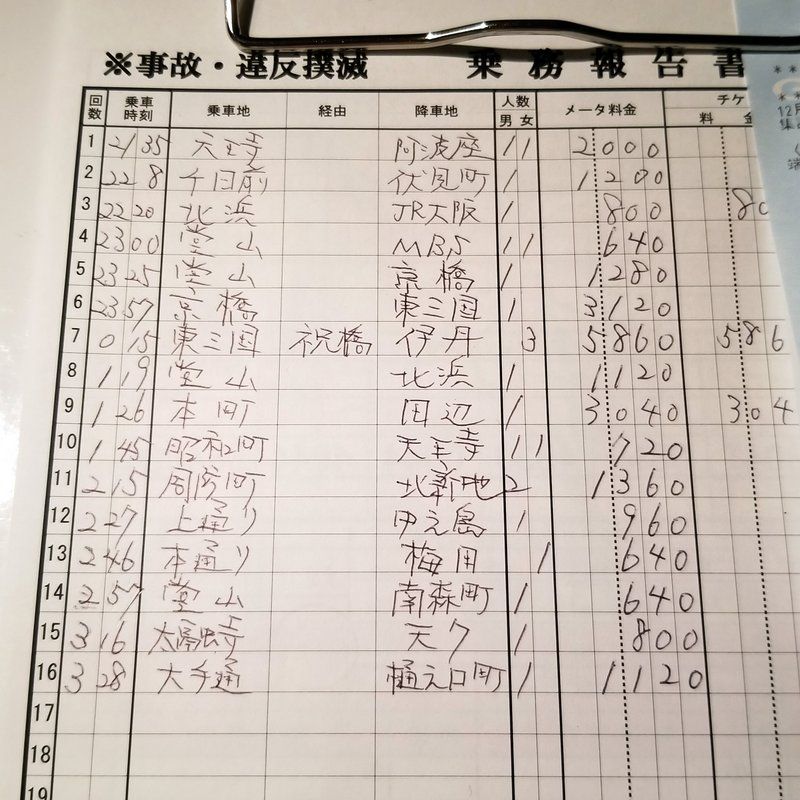 ※事故・違反撲滅 乗務報告書
回数 乗車時刻 乗車地 経由 降車地 人数 男 女 メータ料金 チケ 料 金
1 21 35 天王寺 阿波座 1 1 2000
2 22 8 千日前 伏見町 1 1200
3 22 20 北浜 JR大阪 1 800 80
4 23 00 堂山 MBS 1 1 640
5 23 25 堂山 京橋 1 1280
6 23 57 京橋 東三国 1 3120
7 0 15 東三国 祝橋 伊丹 3 5860 586
8 1 19 堂山 北浜 1 1120
9 1 26 本町 田辺 1 3040 304
10 1 45 昭和町 天王寺 1 1 720
11 2 15 周防町 北新地 2 1360
12 2 27 上通り 中之島 1 960
13 2 46 本通り 梅田 1 640
14 2 57 堂山 南森町 1 640
15 3 16 太融寺 天六 1 800
16 3 28 大手通 樋之口町 1 1120
17
18
19
12月
集